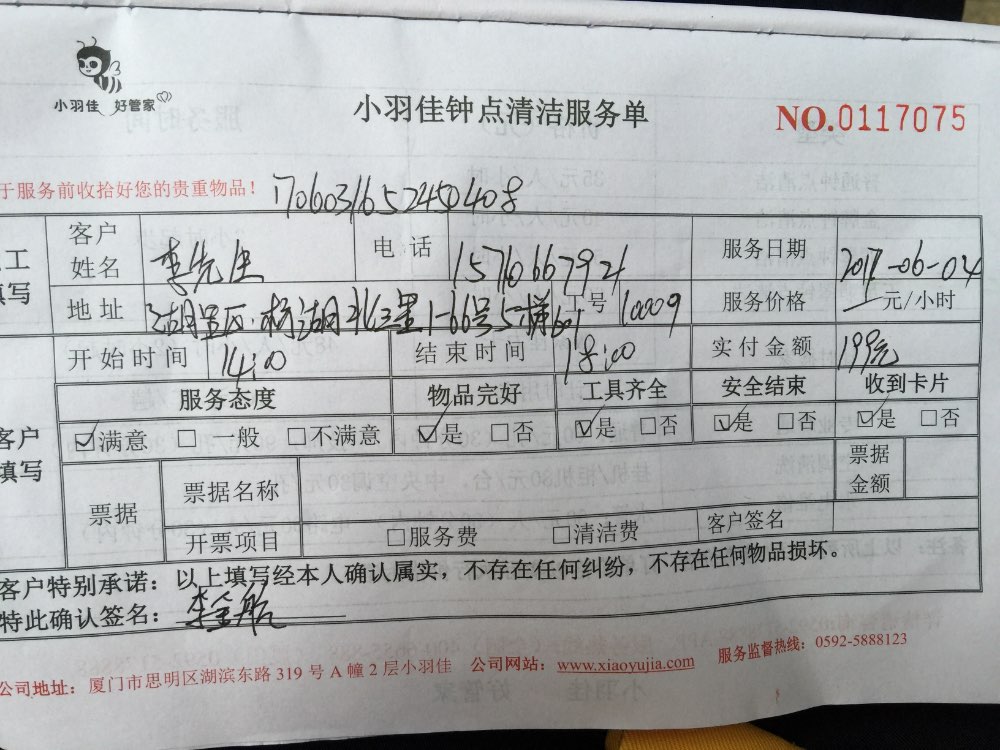 小羽佳 好管家
小羽佳钟点清洁服务单
NO.0117075
于服务前收拾好您的贵重物品！ 1706031652450408
工
填写
客户姓名 李先生 电话 15710667921 服务日期 2017-06-04
地址 湖里区 1-66号5梯601 工号 10009 服务价格 元/小时
开始时间 14:00 结束时间 18:00 实付金额 199元
客户
填写
服务态度 物品完好 工具齐全 安全结束 收到卡片
☑满意 □一般 □不满意 ☑是 □否 ☑是 □否 ☑是 □否 ☑是 □否
票据 票据名称 票据金额
开票项目 □服务费 □清洁费 客户签名
客户特别承诺：以上填写经本人确认属实，不存在任何纠纷，不存在任何物品损坏。
特此确认签名：
公司地址：厦门市思明区湖滨东路 319 号 A 幢 2 层小羽佳 公司网站：www.xiaoyujia.com 服务监督热线：0592-5888123